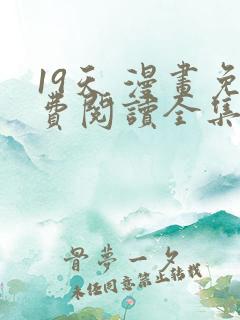 19天 漫畫免
費閱讀全集
骨夢一夕
未经同意禁止转载